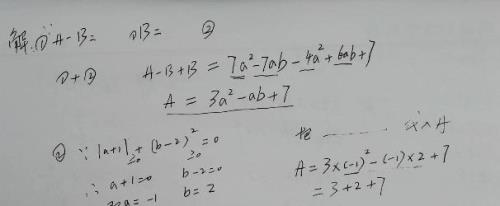 解:①∵A-B= ①B= ②
①+② A-B+B = 7a²-7ab-4a²+6ab+7
A = 3a²-ab+7
② ∵|a+1|+(b-2)²=0
≥0 ≥0
∴ a+1=0 b-2=0
a=-1 b=2
把 ------ 代入A
A=3×(-1)²-(-1)×2+7
=3+2+7